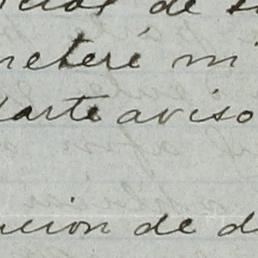 de
meteré mi
darte aviso
ución de d